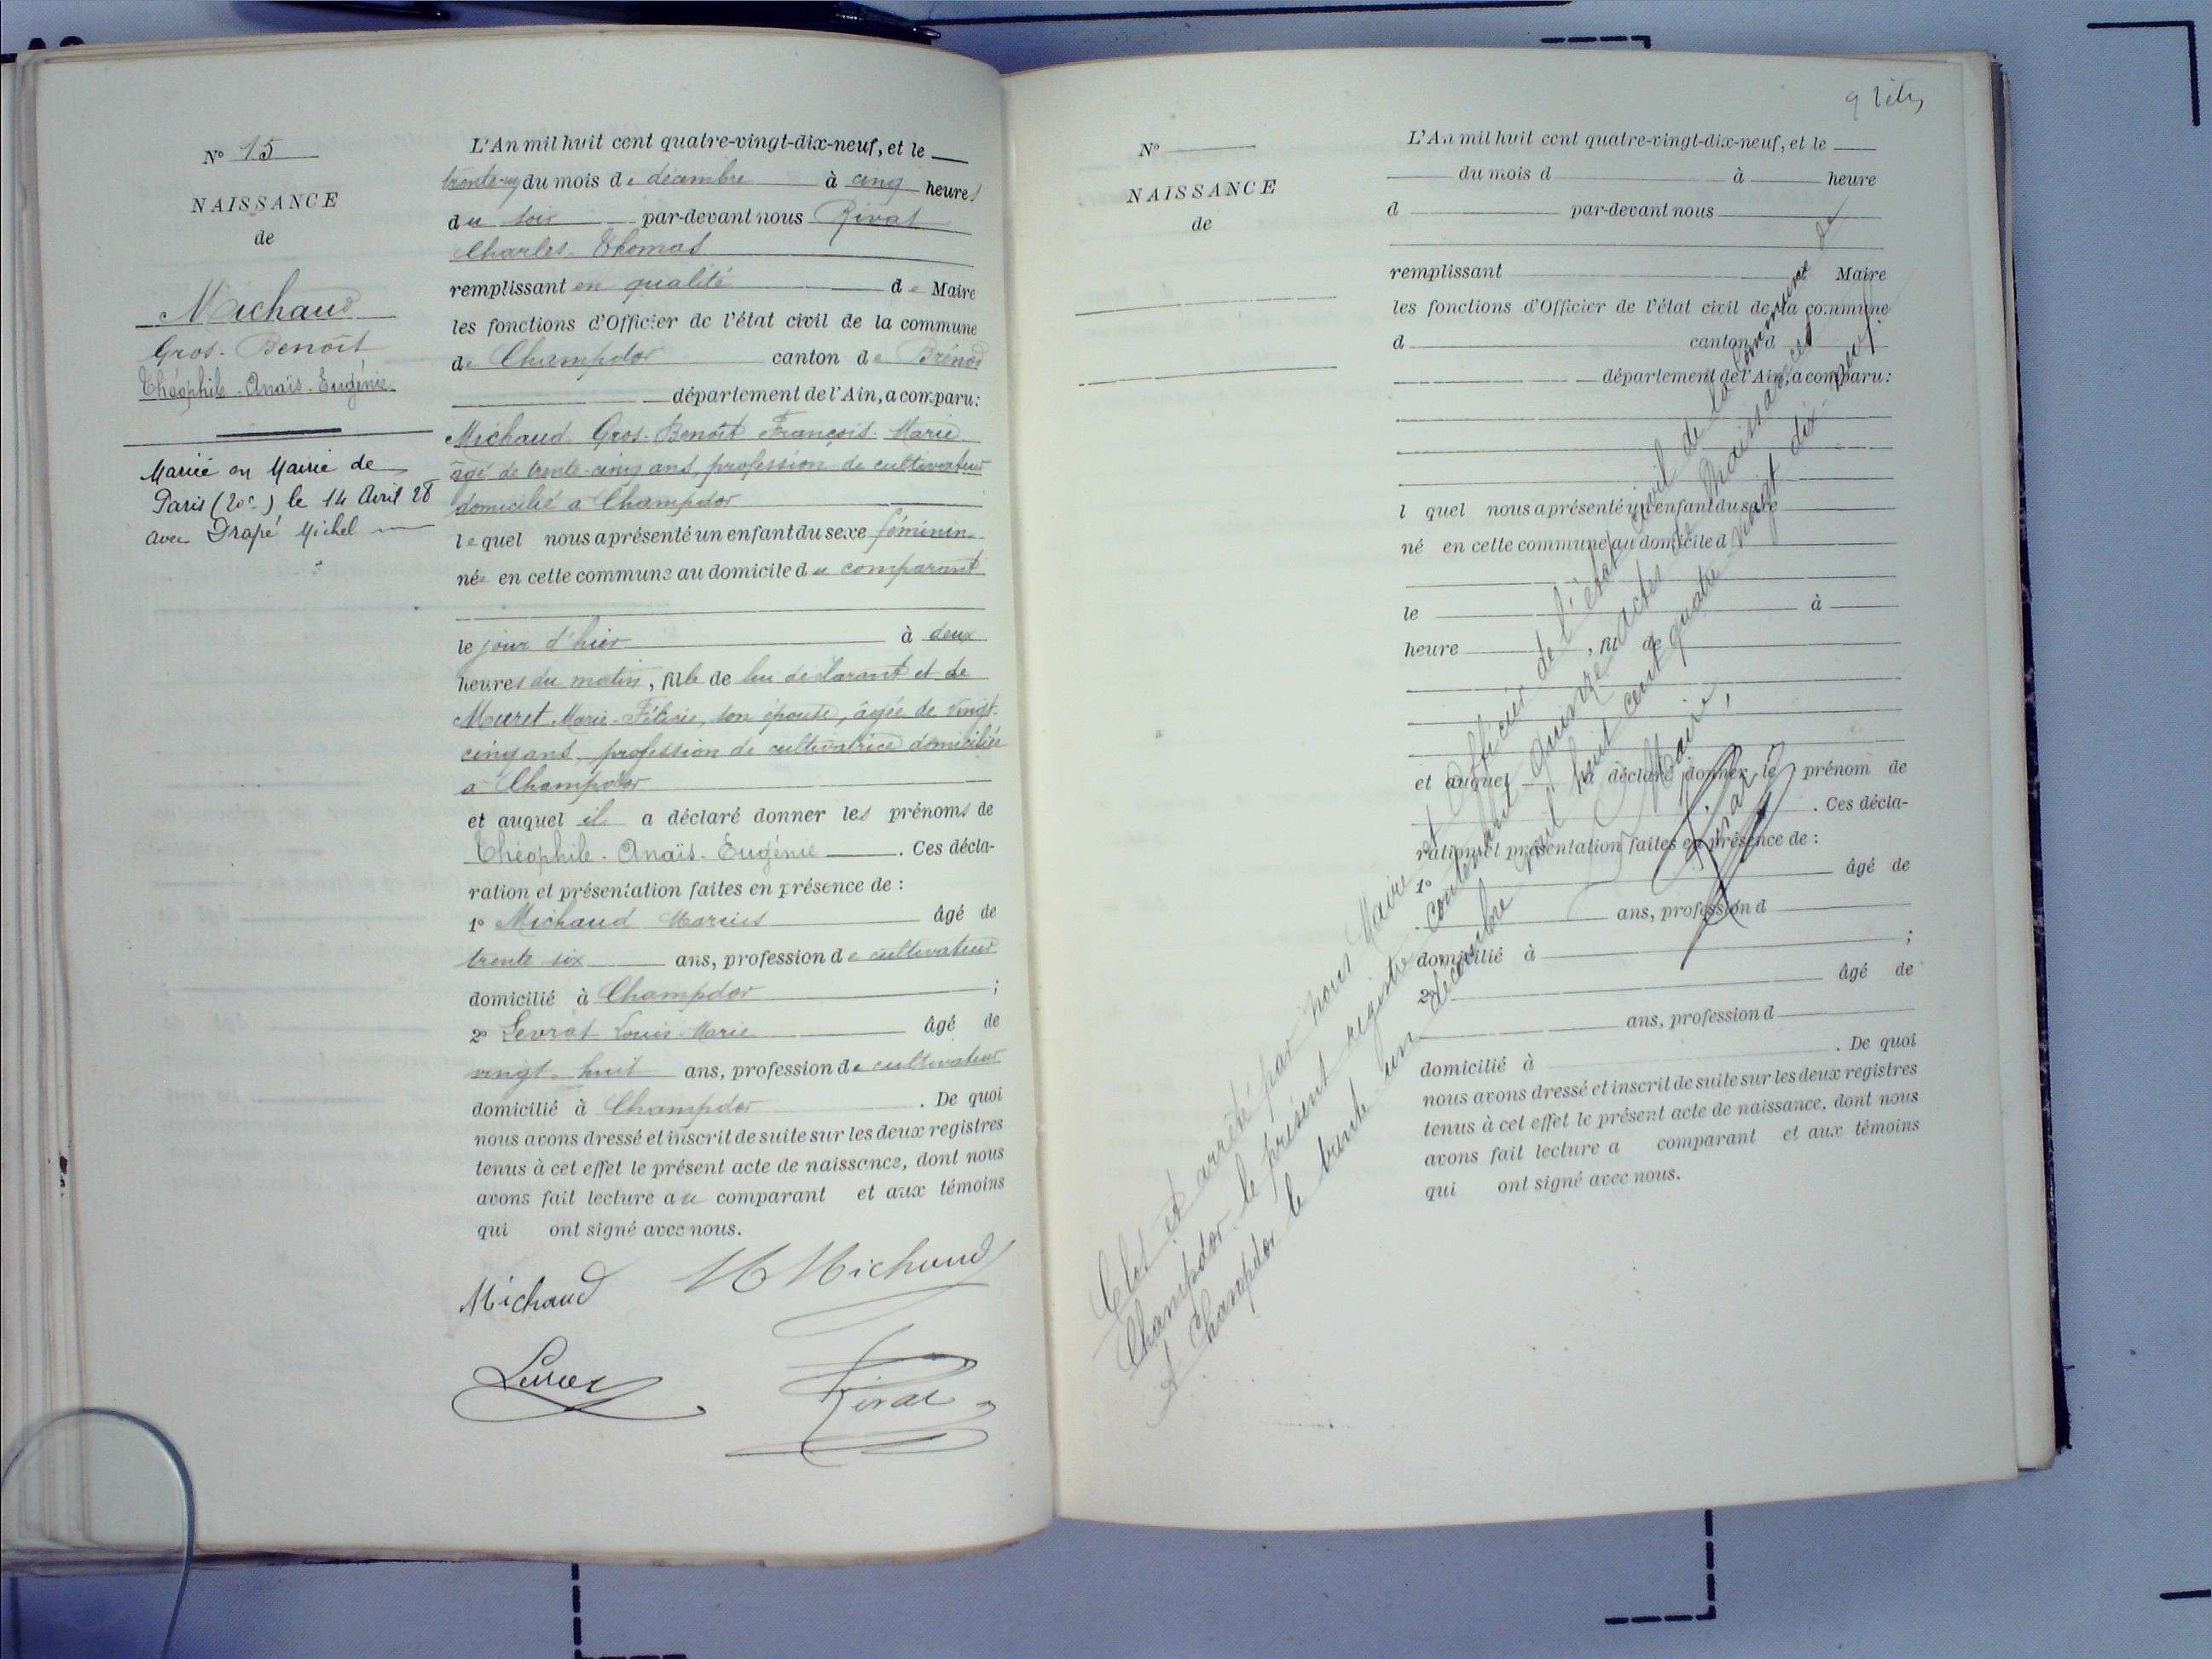 N° 15
NAISSANCE
de
Michaud
Gros-Benoît
Théophile-Anaïs-Eugénie
Mariée en Mairie de
Paris (20e) le 14 Avril 28
avec Drapé Michel
L'An mil huit cent quatre-vingt-dix-neuf, et le
trente-un du mois de décembre à cinq heures
du soir par-devant nous Rivat
Charles-Thomas
remplissant en qualité de Maire
les fonctions d'Officier de l'état civil de la commune
de Champdor canton de Brénod
département de l'Ain, a comparu:
Michaud Gros-Benoît François-Marie
âgé de trente-cinq ans, profession de cultivateur
domicilié à Champdor
lequel nous a présenté un enfant du sexe féminin
née en cette commune au domicile du comparant
le jour d'hier à deux
heures du matin, fille de lui déclarant et de
Muret Marie-Félicie, son épouse, âgée de vingt-
cinq ans, profession de cultivatrice domiciliée
à Champdor
et auquel il a déclaré donner les prénoms de
Théophile-Anaïs-Eugénie. Ces décla-
ration et présentation faites en présence de :
1° Michaud Marius âgé de
trente six ans, profession de cultivateur
domicilié à Champdor ;
2° Levrat Louis-Marie âgé de
vingt-huit ans, profession de cultivateur
domicilié à Champdor. De quoi
nous avons dressé et inscrit de suite sur les deux registres
tenus à cet effet le présent acte de naissance, dont nous
avons fait lecture au comparant et aux témoins
qui ont signé avec nous.
Michaud M Michaud
Rivat
N°
NAISSANCE
de
L'An mil huit cent quatre-vingt-dix-neuf, et le
du mois d à heure
d par-devant nous
remplissant Maire
les fonctions d'Officier de l'état civil de la commune
d canton d
département de l'Ain, a comparu:
l quel nous a présenté un enfant du sexe
né en cette commune au domicile d
le à
heure , fil de
et auquel a déclaré donner le prénom de
. Ces décla-
ration et présentation faites en présence de :
1° âgé de
ans, profession d
domicilié à ;
2° âgé de
ans, profession d
domicilié à . De quoi
nous avons dressé et inscrit de suite sur les deux registres
tenus à cet effet le présent acte de naissance, dont nous
avons fait lecture a comparant et aux témoins
qui ont signé avec nous.
Clos et arrêté par nous Maire et Officier de l'état civil de la commune de
Champdor le présent registre contenant quinze actes de naissances
A Champdor le trente un décembre mil huit cent quatre vingt dix-neuf.
Le Maire,
Rivat